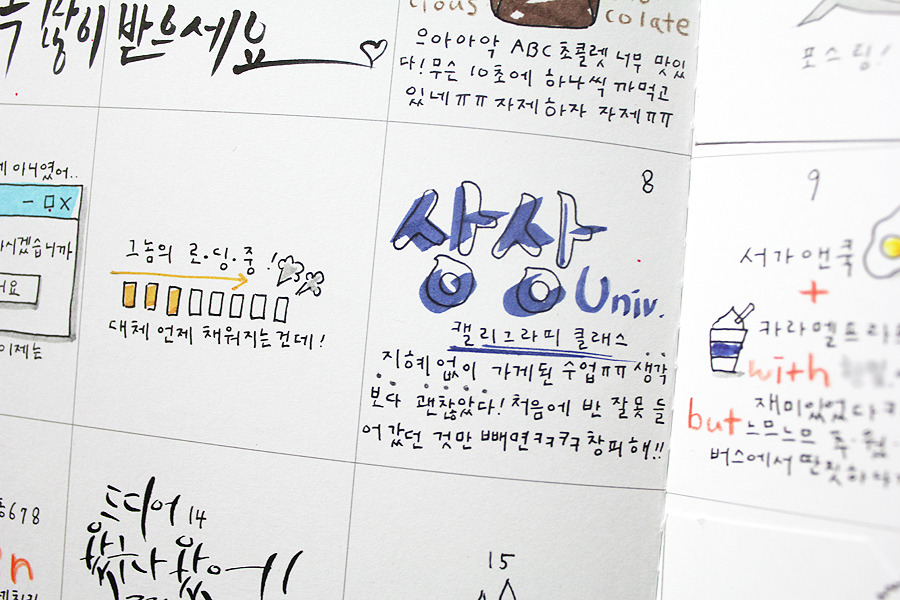 많이 받으세요
cious
colate
으아아악 ABC 초콜렛 너무 맛있
다! 무슨 10초에 하나씩 까먹고
있네ㅠㅠ 자제하자 자제ㅠㅠ
포스팅!
아니였어..
- ㅁ X
시겠습니까
이제는
그놈의 로·딩·중!
대체 언제 채워지는건데!
8
상상
Univ.
캘리그라피 클래스
지혜 없이 가게된 수업ㅠㅠ 생각
보다 괜찮았다! 처음에 반 잘못 들
어갔던 것만 빼면ㅋㅋㅋㅋ 창피해!!
9
서가앤쿡
+
카라멜프라
with
but
재미있었다ㅋ
느므느므 추·웠
버스에서 딴짓하
678
n
드디어 14
15